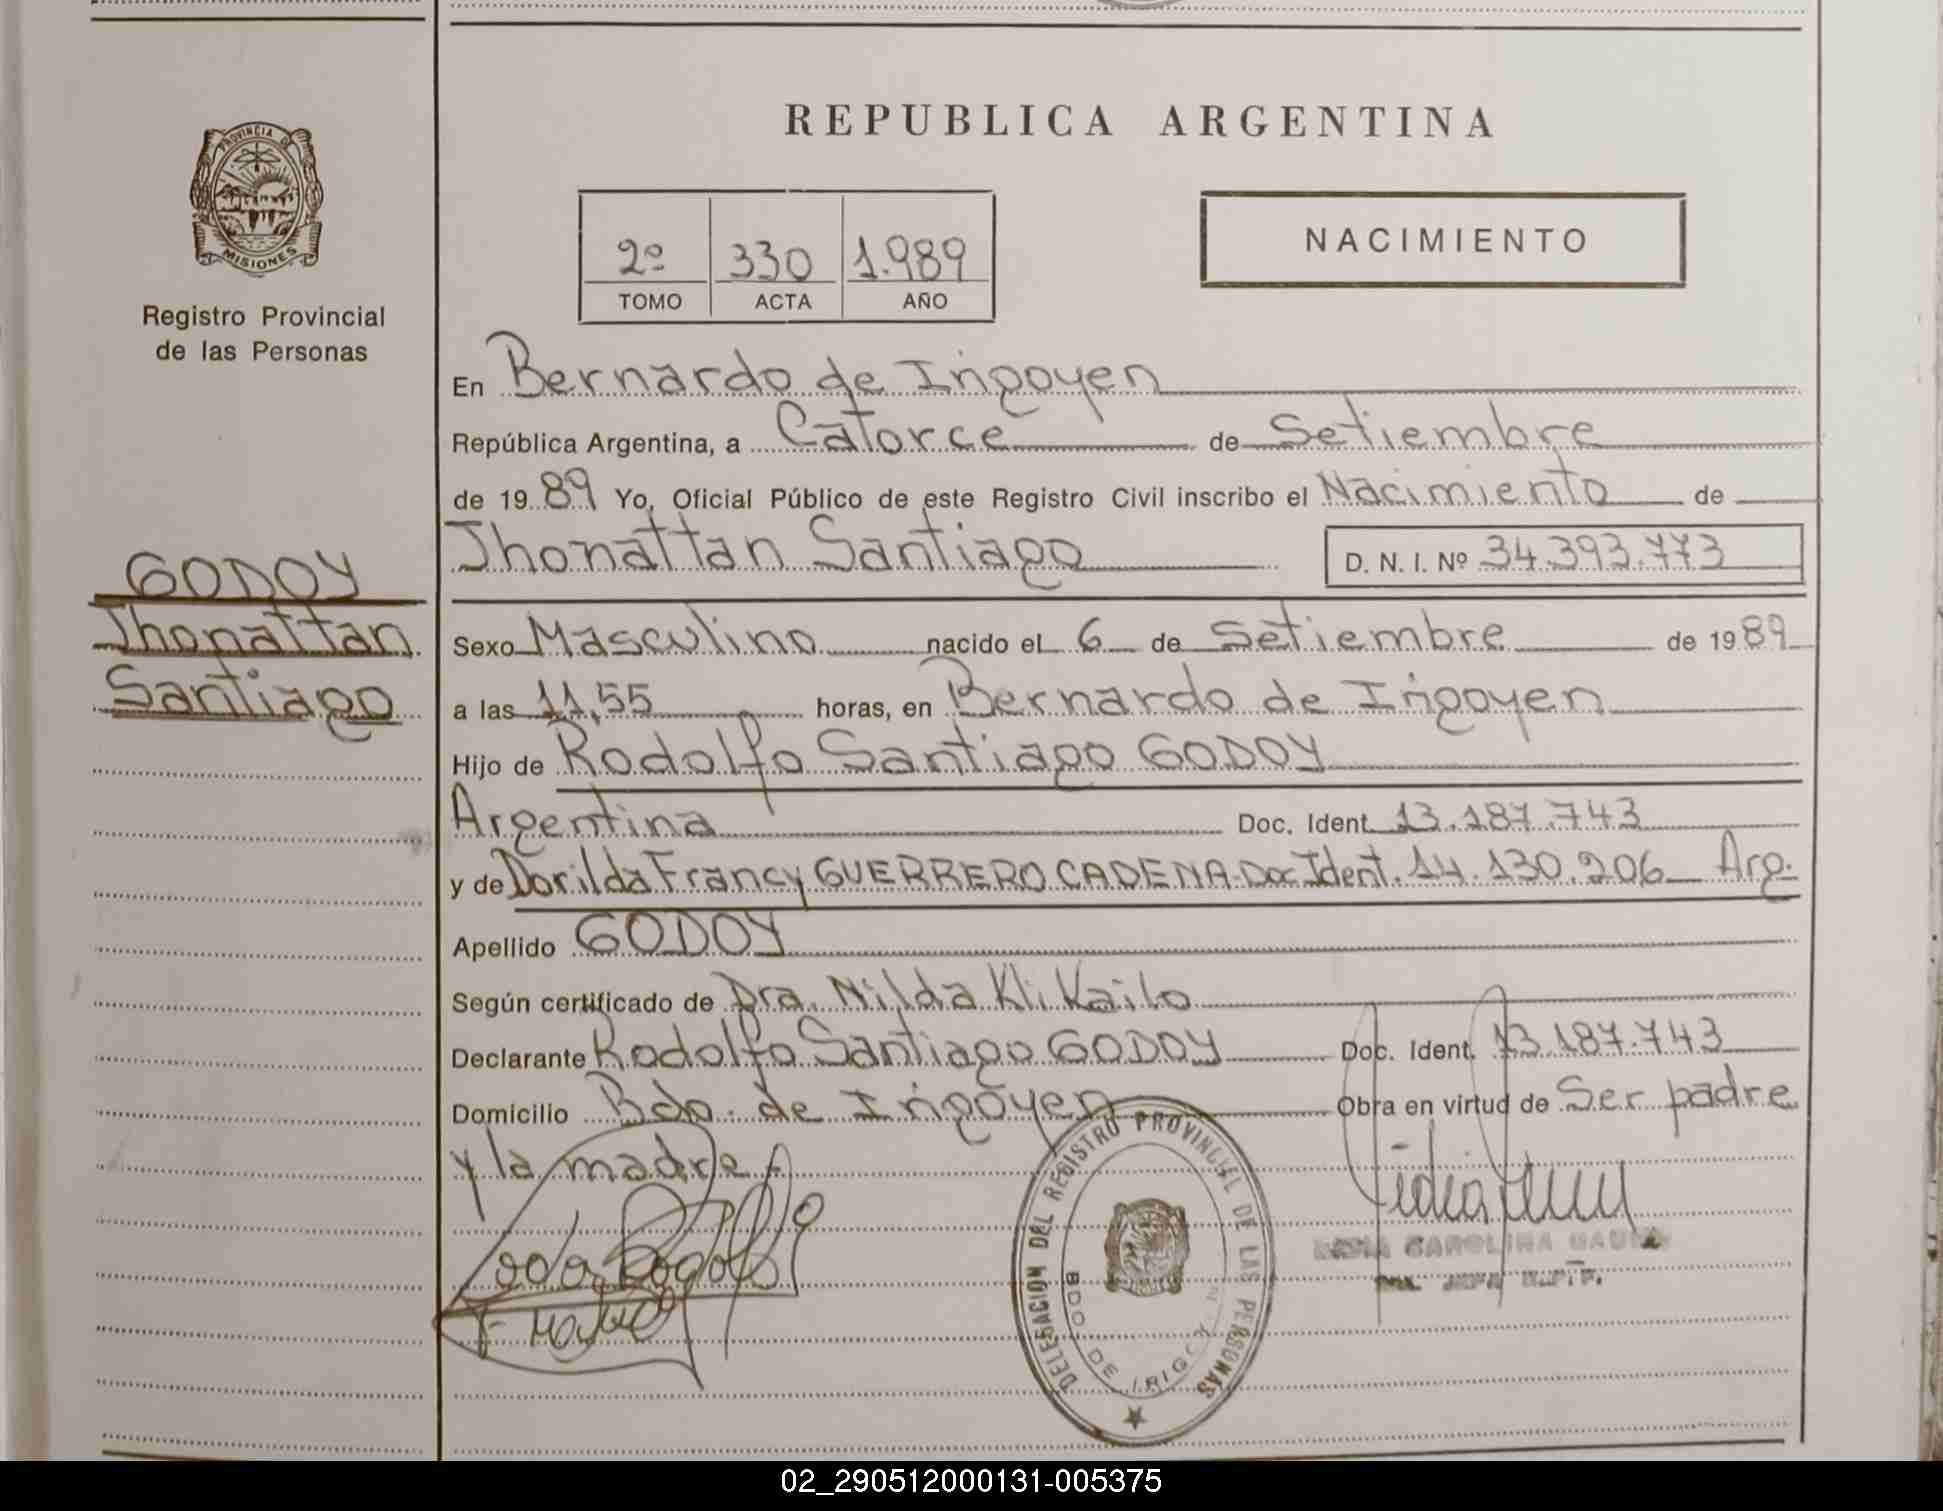 PROVINCIA DE
MISIONES
Registro Provincial
de las Personas
GODOY
Jhonattan
Santiago
REPUBLICA ARGENTINA
2º 330 1.989
TOMO ACTA AÑO
NACIMIENTO
En Bernardo de Irigoyen
República Argentina, a Catorce de Setiembre
de 1989 Yo, Oficial Público de este Registro Civil inscribo el Nacimiento de
Jhonattan Santiago D. N. I. Nº 34.393.773
Sexo Masculino nacido el 6 de Setiembre de 1989
a las 11,55 horas, en Bernardo de Irigoyen
Hijo de Rodolfo Santiago GODOY
Argentina Doc. Ident. 13.187.743
y de Dorilda Francy GUERRERO CADENA-Doc Ident. 14.130.206 Arg.
Apellido GODOY
Según certificado de Dra. Nilda Klikailo
Declarante Rodolfo Santiago GODOY Doc. Ident. 13.187.743
Domicilio Bdo. de Irigoyen Obra en virtud de Ser padre
y la madre
DELEGACION DEL REGISTRO PROVINCIAL DE LAS PERSONAS
BDO. DE IRIGOYEN
CAROLINA
02_290512000131-005375